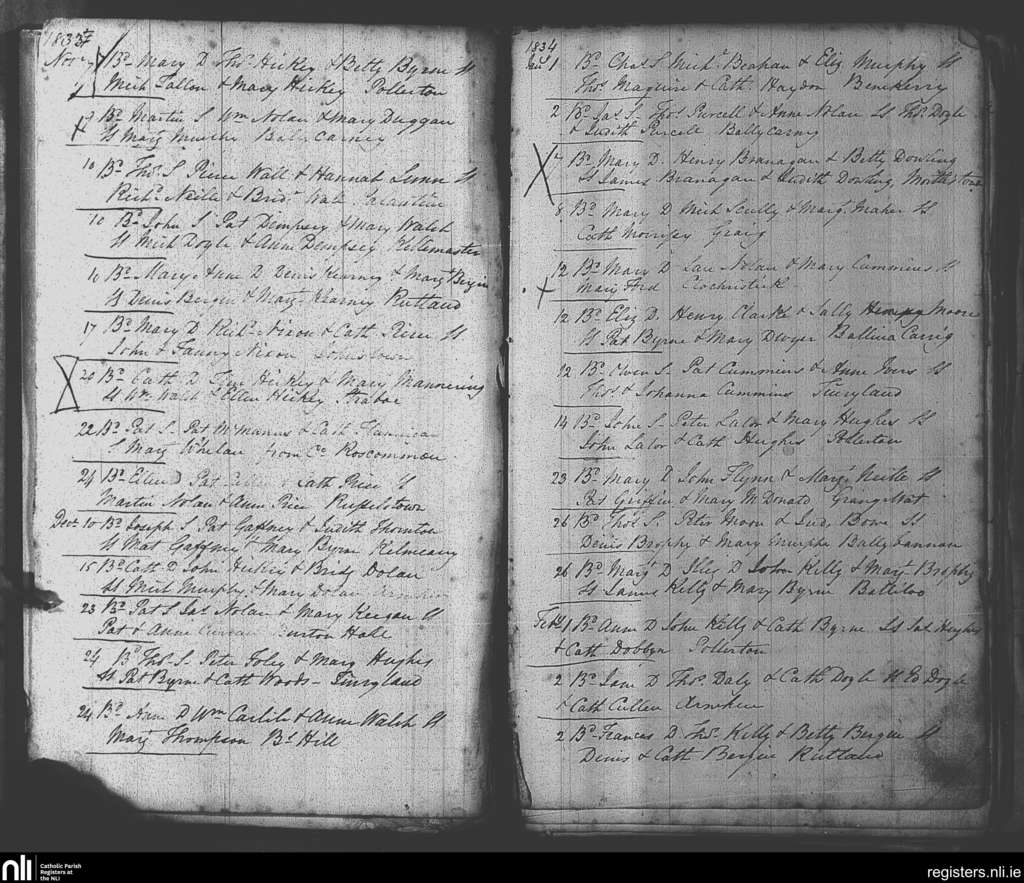 1833
Nov 7 Bd Mary D Thos Hickey & Betty Byrne Ss
Mich Fallon & Mary Hickey Pollerton
9 Bd Martin S Wm Nolan & Mary Duggan
Ss Marg Murphy Ballycarney
10 Bd Thos S Pierce Wall & Hannah Ss
Richd Neille & Bridt
10 Bd John S Pat Dempsey & Mary Walsh
Ss Mich Doyle & Anne Dempsey Kellemaster
10 Bd Mary Anne D Denis Kearney & Margt Bergin
Ss Denis Bergin & Margt Kearney Rutland
17 Bd Mary D Richd Nixon & Cath Rice Ss
John & Fanny Nixon Johnstown
20 Bd Cath D Hickey & Mary Mannering
Ss Wm Walsh & Ellen Hickey Straboe
22 Bd Pat S. Pat McManus & Cath
S. Mary Whelan from Co Roscommon
24 Bd Ellen D Pat & Cath Ss
Martin Nolan & Anne Russelstown
Decr 10 Bd Joseph S Pat Gaffney & Judith Thornton
Ss Mat Gaffney & Mary Byrne Kelmeany
15 Bd Cath D John & Bridt Dolan
Ss Mich Murphy & Mary Dolan
23 Bd Pat S Jas Nolan & Mary Keegan Ss
Pat & Anne Burton Hall
24 Bd Thos S. Peter Foley & Marg Hughes
Ss Pat Byrne & Cath Woods - Tinryland
24 Bd Anne D Wm Carlile & Anne Walsh Ss
Marg Thompson Bs Hill
1834
Jan 1 Bd Chas S Mich Beahan & Eliz Murphy Ss
Thos Maguire & Cath Haydon Benekerry
2 Bd Jas S. Thos Purcell & Anne Nolan Ss Thos Doyle
& Judith Purcell Ballycarney
Bd Mary D. Henry Branagan & Betty Dowling
Ss James Branagan & Judith Dowling
8 Bd Mary D Mich Scully & Marg Maher Ss
Cath Morrisey Graig
12 Bd Mary D Lau Nolan & Mary Cummins Ss
Mary Ford Crochnstick
12 Bd Eliz D. Henry Clarke & Sally Moore
Ss Pat Byrne & Mary Dwyer Ballina Carrig
12 Bd Owen S. Pat Cummins & Anne Ss
Thos & Johanna Cummins Tinryland
14 Bd John S. Peter Lalor & Mary Hughes Ss
John Lalor & Cath Hughes Pollerton
23 Bd Mary D John Flynn & Marg Neille Ss
Pat Griffin & Mary McDonald Grangewat
26 Bd Thos S. Peter Moore & Jud. Bowe Ss
Denis Brophy & Mary Murphy Ballylannan
26 Bd Marg D Illeg D John Kelly & Margt Brophy
Ss James Kelly & Mary Byrne
Feby 1 Bd Anne D John Kelly & Cath Byrne Ss Jas Hughes
& Cath Dobbyn Pollerton
2 Bd Jane D Thos Daly & Cath Doyle Ss Ed Doyle
& Cath Cullen
2 Bd Frances D Thos Kelly & Betty Bergin Ss
Denis & Cath Bergin Rutland
nli Catholic Parish
Registers at
the NLI
registers.nli.ie